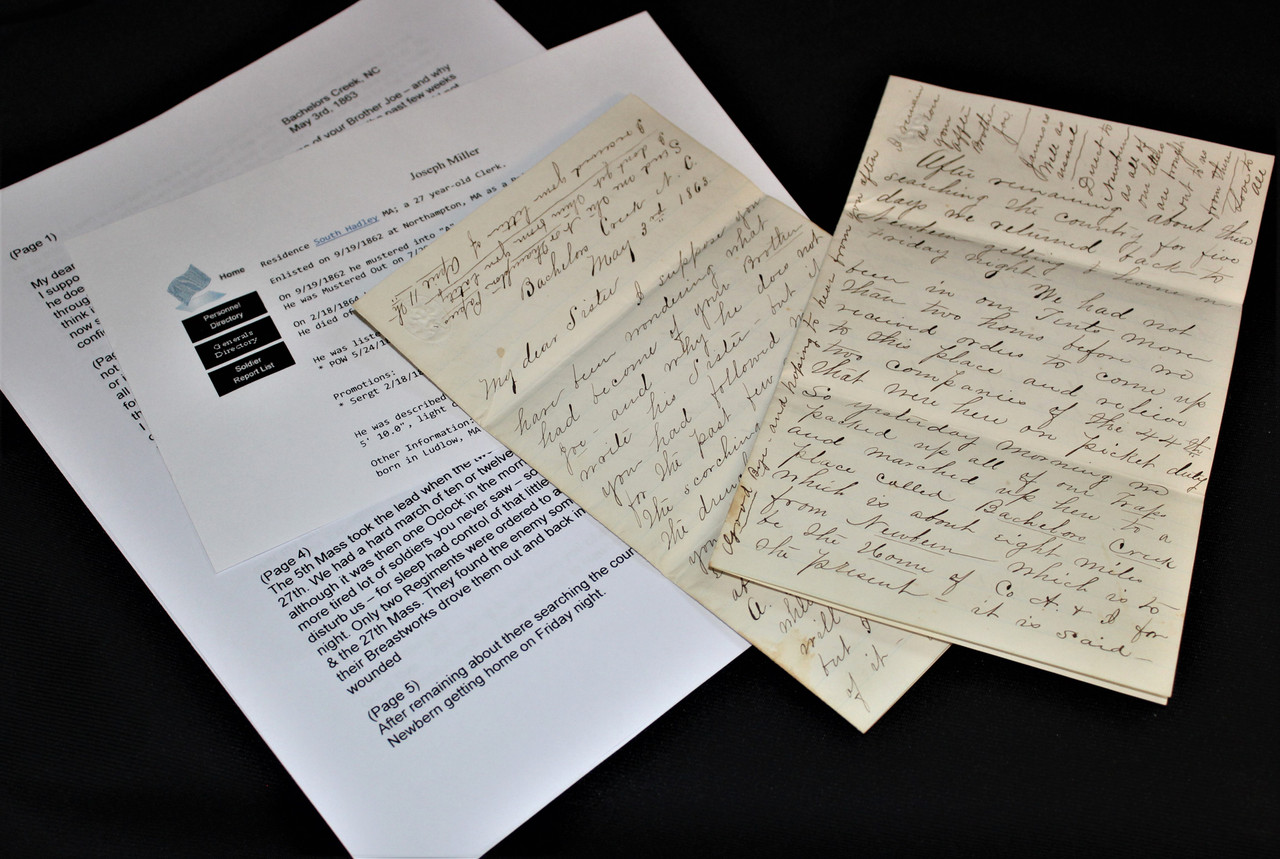 Bachelors Creek, NC
May 3rd, 1863
of your Brother Joe – and why
past few weeks
(Page 1)
My dear
I suppo
he doe
throug
think i
now s
confi
(Pag
not
or l
all
fo
Joseph Miller
Home
Personnel
Directory
Generals
Directory
Soldier
Report List
Residence South Hadley MA; a 27 year-old Clerk.
Enlisted on 9/19/1862 at Northampton, MA as a
On 9/19/1862 he mustered into "A
He was Mustered Out on 7/2
On 2/18/1864
He died o
He was liste
* POW 5/24/1
Promotions:
* Sergt 2/18/1
He was described
5' 10.0", light c
Other Information:
born in Ludlow, MA
(Page 4)
The 5th Mass took the lead when the
27th. We had a hard march of ten or twelve
although it was then one Oclock in the morn
more tired lot of soldiers you never saw – so
disturb us – for sleep had control of that little
night. Only two Regiments were ordered to a
& the 27th Mass. They found the enemy som
their Breastworks drove them out and back in
wounded
(Page 5)
After remaining about there searching the cou
Newbern getting home on Friday night.
I received your letter of
April 11th
Bachelors Creek N. C.
May 3rd 1863
My dear Sister
I suppose you
have been wondering what
had become of your Brother
Joe – and why he does not
write his Sister – but if
you had followed
for the past few
the scorching
the dren
you
at
A.
will
but I
of it –
I remain
as ever
your
Aff
Brother
Joe
James is
Well as
usual
Direct to
Newbern
as all of
our letters
are brought
out to us
from there
Love to
all
After remaining about there
searching the country for five
days we returned back to
Newbern getting home on
Friday night. We had not
been in our Tents more
than two hours before we
received orders to come up
to this place and relieve
two companies of the 44th
that were here on picket duty
So yesterday morning we
packed up all of our Traps
and marched up here to a
place called Bachelors Creek
which is about eight miles
from Newbern which is to
be the Home of Co A. & I for
the present – it is said
Good bye and hoping to hear from you often